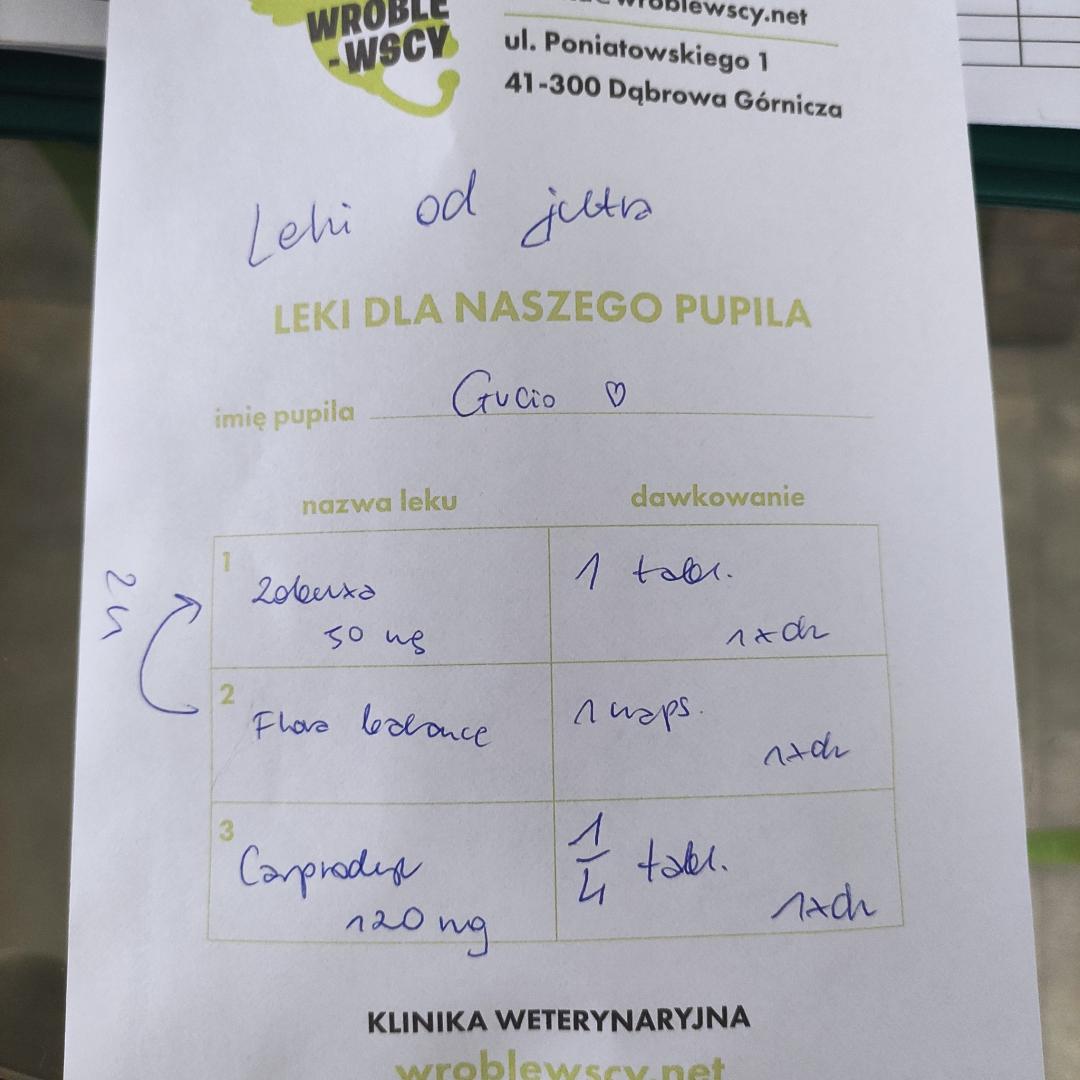 WRÓBLE
-WSCY
wroblewscy.net
ul. Poniatowskiego 1
41-300 Dąbrowa Górnicza
Leki od jutra
LEKI DLA NASZEGO PUPILA
imię pupila Gucio ♡
nazwa leku dawkowanie
1 1 tabl.
50 mg 1xdz
2 h
2 Flora balance 1 kaps.
1xdz
3 Carprodyl 1/4 tabl.
120 mg 1xdz
KLINIKA WETERYNARYJNA
wroblewscy.net